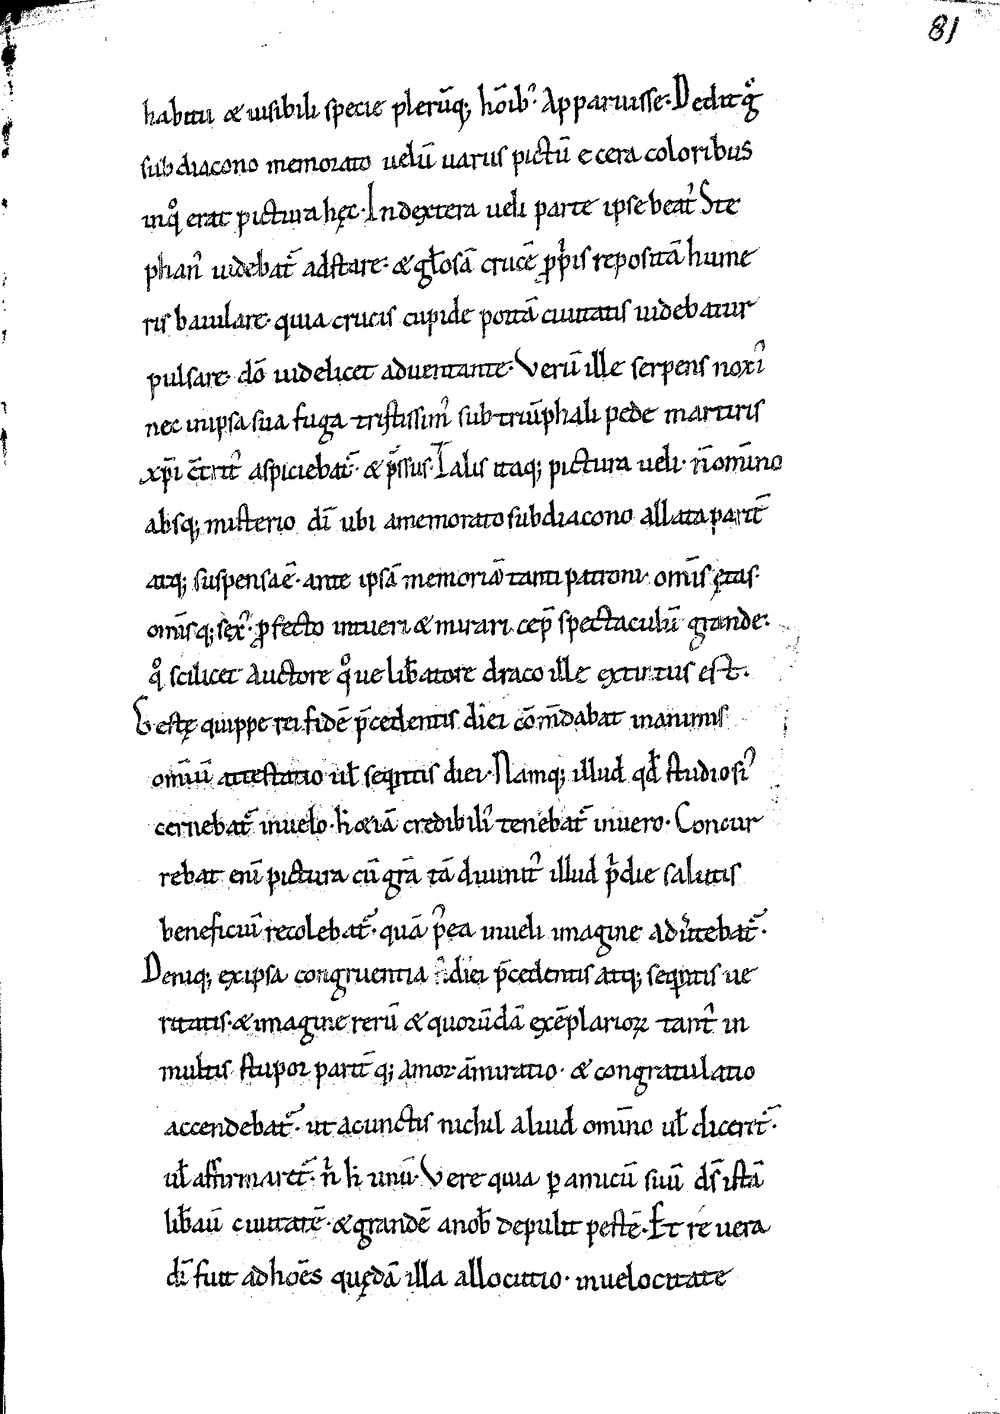 81
habitu & uisibili specie plerūq; hōib᾿ Apparuisse. Dedit gͦ
subdiacono memorato uelū uariis pictū e cera coloribus
in qͦ erat pictura hęc. In dextera ueli parte ipse beat᾿ Ste
phan᾿ uidebat᷑ adstare. & gło̅sā crucē ꝓp̄iis repositā hume
ris baiulare. quia crucis cupide portā ciuitatis uidebatur
pulsare. dō uidelicet aduentante. Verū ille serpens noxi᾿
nec in ipsa sua fuga tristissim᾿ sub triūphali pede martiris
xp̄i c̄trit᾿ aspiciebat᷑. & p̄ssus. Talis itaq; pictura ueli. n̄ om̄ino
absq; misterio dī ubi a memorato subdiacono allata parit᷑
atq; suspensa ē. ante ipsā memoriā tanti patroni. om̄is ętas.
om̄isq; sex᾿. ꝓfecto intueri & mirari cep̄ spectaculū grande.
qͦ scilicet Auctore qͦ ue lib̄atore draco ille extinctus est.
Gestę quippe rei fidē p̄cedentis diei cōm̄dabat inanimis
om̄iū attestatio uł seq̄ntis diei. Namq; illud qd̄ studiosi᾿
cernebat᷑ in uelo. h̄ & iā credibili᾿ tenebat᷑ in uero. Concur
rebat eni̅ pictura cū gr̄a tā diuinit᾿ illud p̄die salutis
beneficiū recolebat᷑. quā p̄ea in ueli imagine aduertebat᷑.
Deniq; ex ipsa congruentia diei p̄cedentis atq; seq̄ntis ue
ritatis. & imagine rerū & quorūdā exēplarioꝝ tant᾿ in
multis stupor parit᷑ q; amor am̄iratio. & congratulatio
accendebat᷑. ut a cunctis nichil aliud om̄ino uł diceret᷑.
uł affirmaret᷑. n̄ h̄ unū. Vere quia ꝑ amicū suū ds̄ istā
lib̄auit ciuitatē. & grandē a nob̄ depulit pestē. Et re uera
dī fuit ad hōēs quędā illa allocutio. in uelocitate